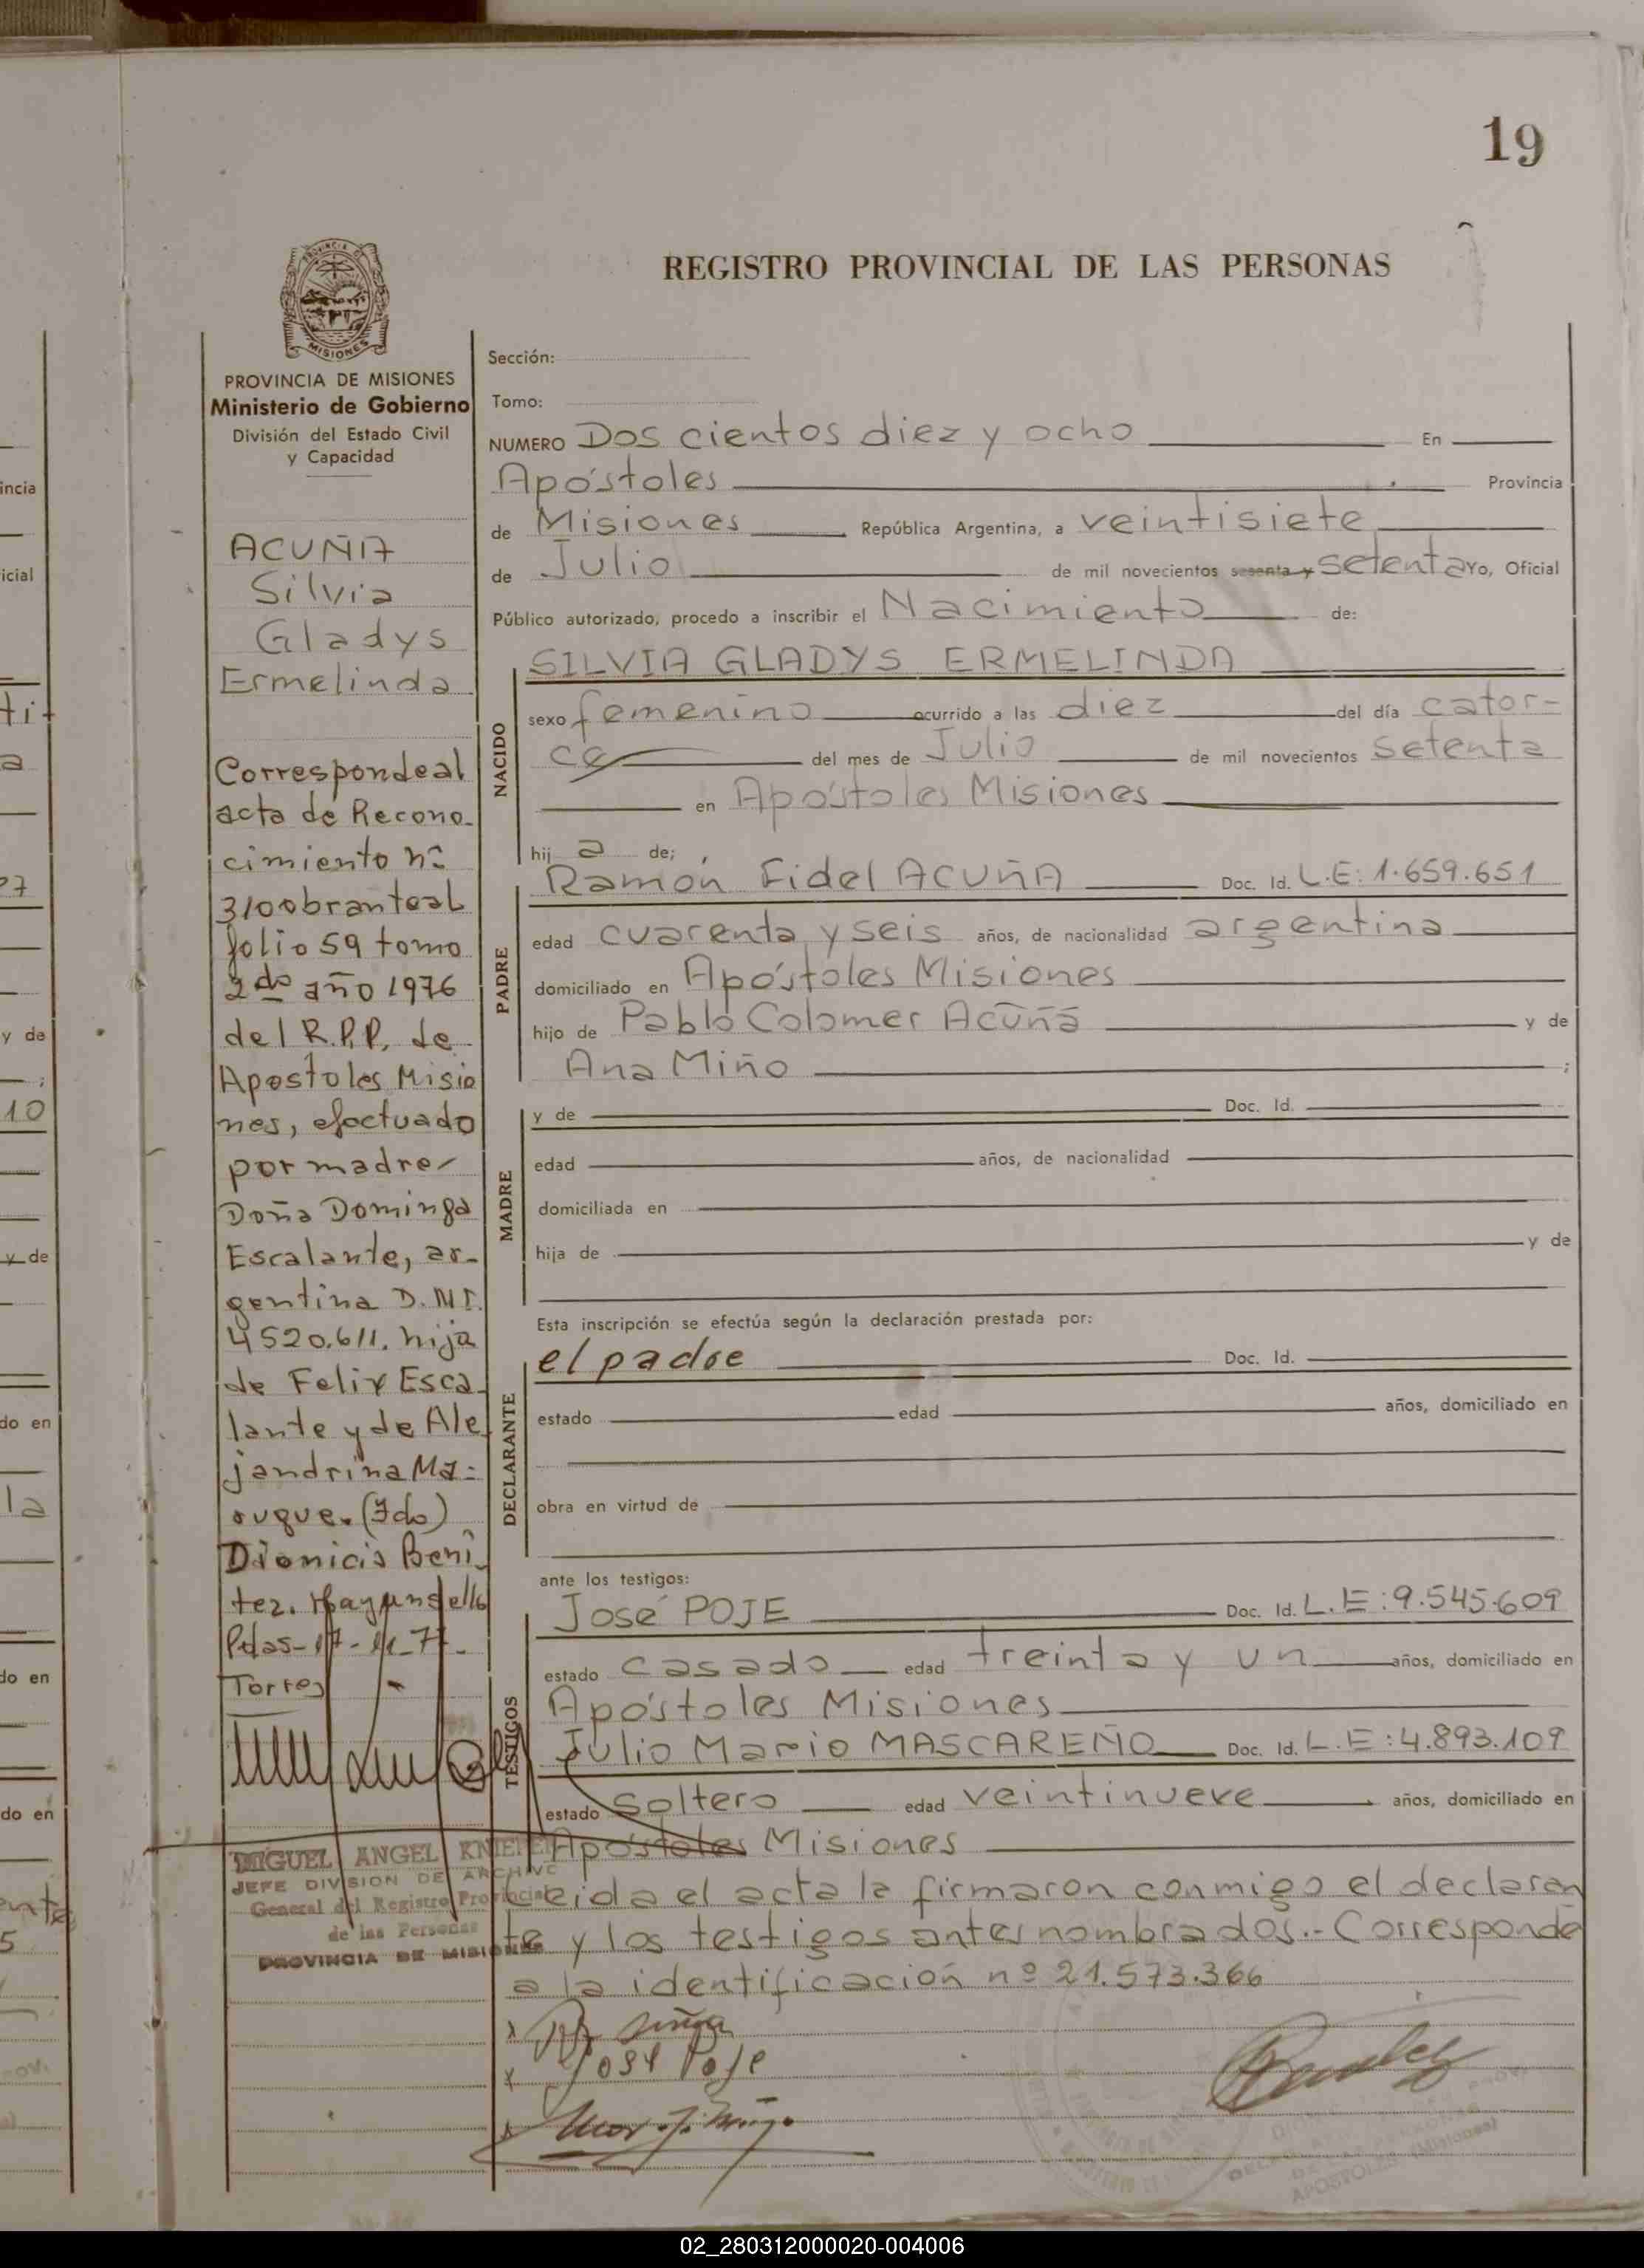 19
REGISTRO PROVINCIAL DE LAS PERSONAS
MISIONES
PROVINCIA DE MISIONES
Ministerio de Gobierno
División del Estado Civil
y Capacidad
ACUÑA
Silvia
Gladys
Ermelinda
Corresponde al
acta de Recono-
cimiento nº
310 obrante al
folio 59 tomo
2do año 1976
del R.P.P. de
Apostoles Misio
nes, efectuado
por madre
Doña Dominga
Escalante, ar-
gentina D.N.I.
4520.611. hija
de Felix Esca-
lante y de Ale
jandrina Ma-
ruque. (Fdo)
Dionicio Beni-
tez.
Pdas-17-11-77-
Torres
MIGUEL ANGEL
JEFE DIVISION DE ARCHIVO
General del Registro Provincial
de las Personas
PROVINCIA DE MISIONES
Sección:
Tomo:
NUMERO Dos cientos diez y ocho En
Apóstoles Provincia
de Misiones República Argentina, a veintisiete
de Julio de mil novecientos sesenta y setenta Yo, Oficial
Público autorizado, procedo a inscribir el Nacimiento de:
NACIDO
SILVIA GLADYS ERMELINDA
sexo femenino ocurrido a las diez del día cator-
ce del mes de Julio de mil novecientos setenta
en Apóstoles Misiones
hij a de;
PADRE
Ramón Fidel ACUÑA Doc. Id. L.E: 1.659.651
edad cuarenta y seis años, de nacionalidad argentina
domiciliado en Apóstoles Misiones
hijo de Pablo Colomer Acuña y de
Ana Miño ;
MADRE
y de Doc. Id.
edad años, de nacionalidad
domiciliada en
hija de y de
Esta inscripción se efectúa según la declaración prestada por:
DECLARANTE
el padre Doc. Id.
estado edad años, domiciliado en
obra en virtud de
ante los testigos:
TESTIGOS
José POJE Doc. Id. L.E: 9.545.609
estado casado edad treinta y un años, domiciliado en
Apóstoles Misiones
Julio Mario MASCAREÑO Doc. Id. L.E: 4.893.109
estado soltero edad veintinueve años, domiciliado en
Apóstoles Misiones
Leida el acta la firmaron conmigo el declaran
te y los testigos antes nombrados.- Corresponde
a la identificación nº 21.573.366
José Poje
APOSTOLES (Misiones)
02_280312000020-004006